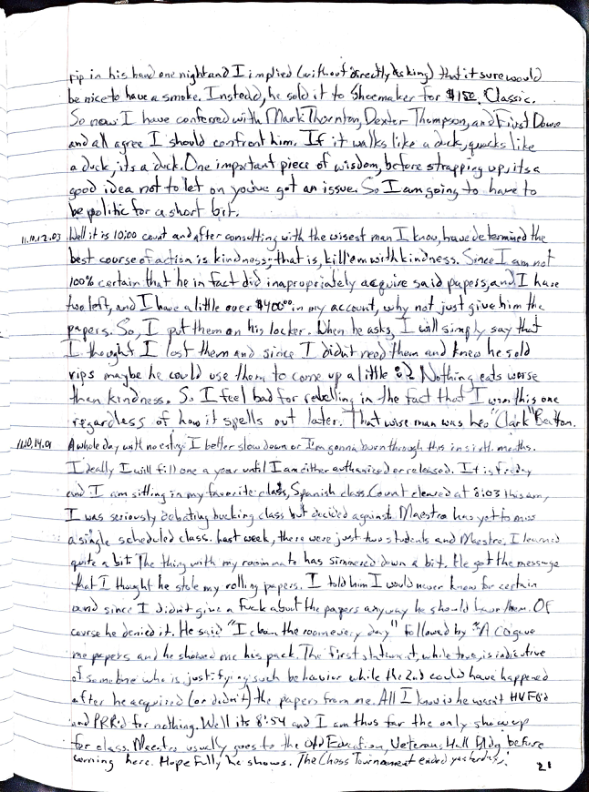 rip in his hand one night and I implied (without directly asking) that it sure would
be nice to have a smoke. Instead, he sold it to Shoemaker for $1.50. Classic.
So now I have conferred with Mark Thornton, Dexter Thompson, and First Down
and all agree I should confront him. If it walks like a duck, quacks like
a duck, its a duck. One important piece of wisdom, before strapping up, its a
good idea not to let on you've got an issue. So I am going to have to
be politic for a short bit.
Well it is 10:00 count and after consulting with the wisest man I know, have determined the
best course of action is kindness; that is, kill'em with kindness. Since I am not
100% certain that he in fact did inapropriately acquire said papers, and I have
two left, and I have a little over $400.00 in my account, why not just give him the
papers. So, I put them on his locker. When he asks, I will simply say that
I thought I lost them and since I didn't need them and knew he sold
rips maybe he could use them to come up a little Nothing eats worse
than kindness. So I feel bad for rebelling in the fact that I won this one
regardless of how it spells out later. That wise man was "Clark" Beaton.
A whole day with no entry. I better slow down or I'm gonna burn through this in six months.
Ideally I will fill one a year until I am either euthanized or released. It is friday
and I am sitting in my favorite class, Spanish class. Count cleared at 8:03 this am,
I was seriously debating bucking class but decided against. Maestro has yet to miss
a single scheduled class. Last week, there were just two students and Maestro. I learned
quite a bit The thing with my roommate has simmered down a bit. He got the message
that I thought he stole my rolling papers. I told him I would never know for certain
and since I didn't give a fuck about the papers anyway he should have them. Of
course he denied it. He said "I clean the room every day" followed by gave
me papers and he showed me his pack. The first statement, while true, is indicative
of someone who is justifying such behavior while the 2nd could have happened
after he acquired (or didn't) the papers from me. All I know is he wasn't
and for nothing. Well its 8:54 and I am thus far the only show up
for class. Maestro usually goes to the Old Education, Veterans Hall Bldg before
coming here. Hopefully he shows. The Chess Tournament ended yesterday,
21